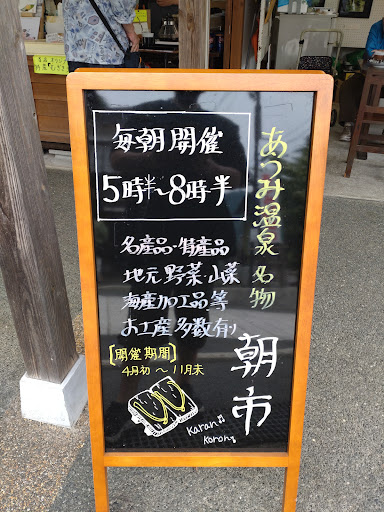 あつみ温泉 名物
朝市
毎朝開催
5時半～8時半
名産品・特産品
地元野菜・山菜
海産加工品等
お土産多数有り
[開催期間]
4月初～11月末
Karan♫
Koron♪